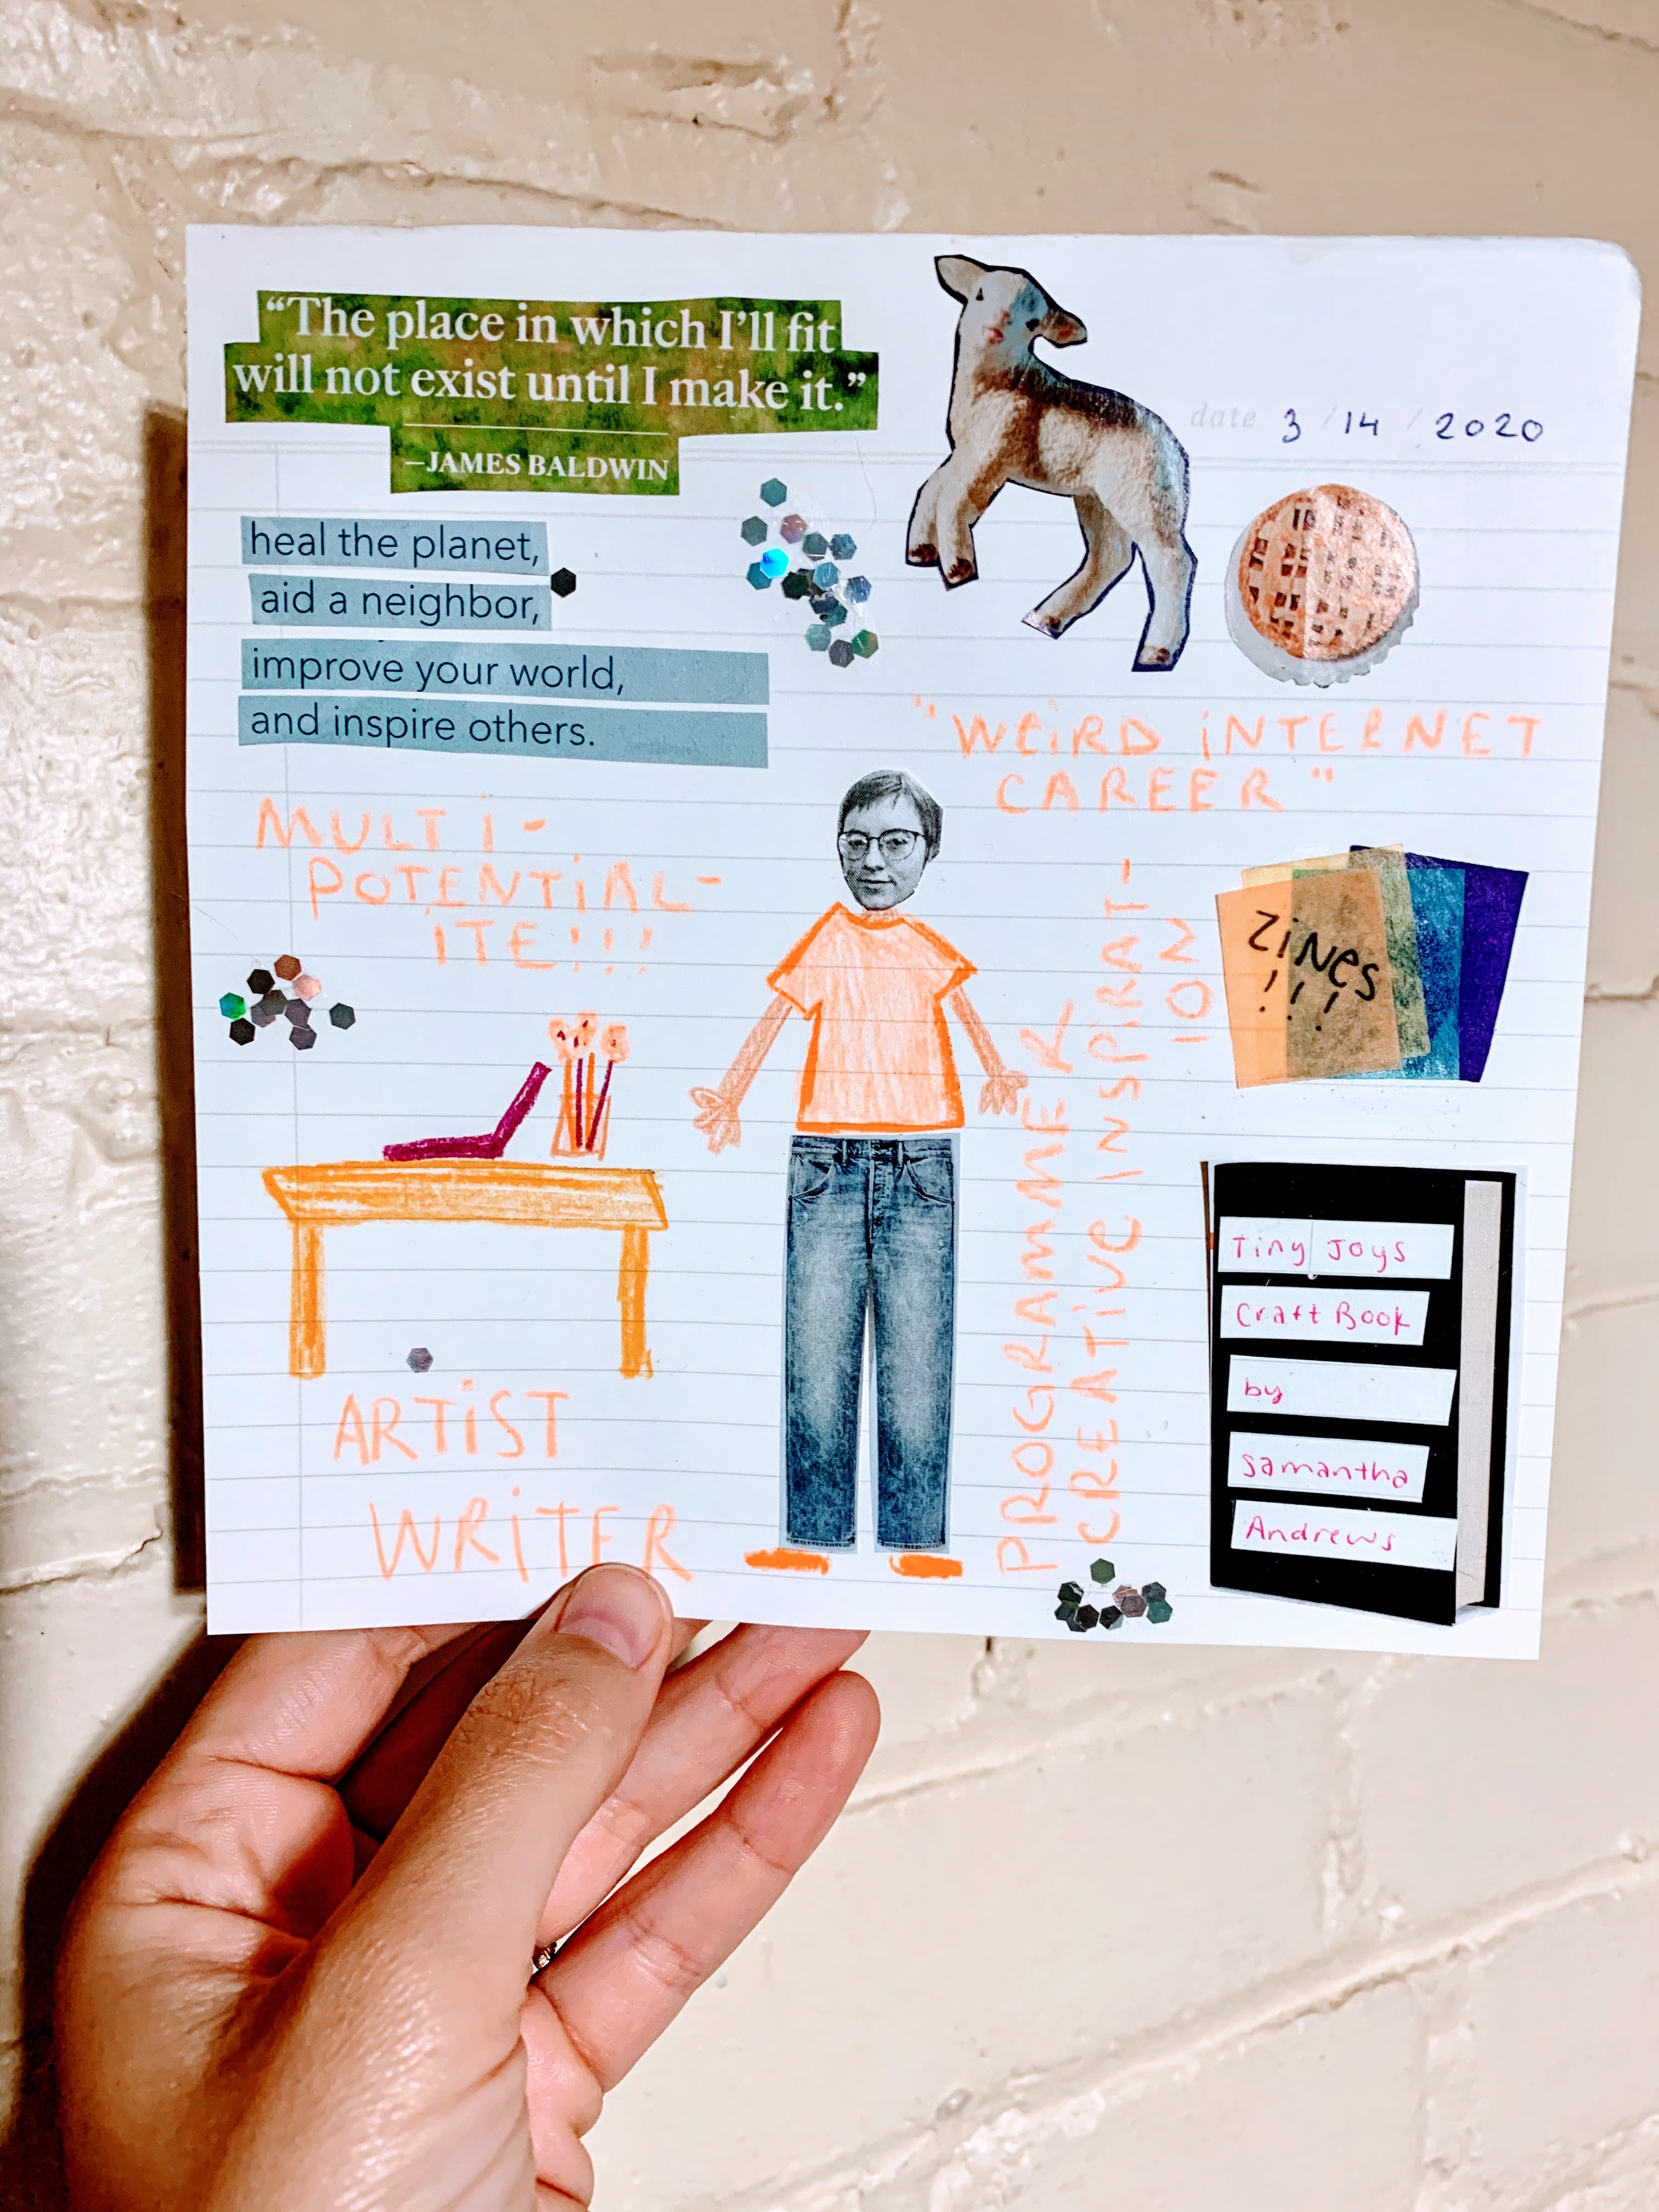 “The place in which I’ll fit
will not exist until I make it.”
—JAMES BALDWIN
date 3 / 14 / 2020
heal the planet,
aid a neighbor,
improve your world,
and inspire others.
"WEiRD iNTERNET
CAREER"
MULTi-
POTENTiAL-
iTE!!!
ZiNes
!!!
PROGRAMMER
CREATiVE iNSPiRAT-
ION
Tiny Joys
Craft Book
by
Samantha
Andrews
ARTiST
WRiTER